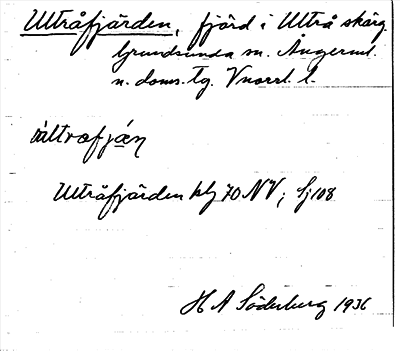 Ultråfjärden, fjärd i Ultrå skärg.
Grundsunda sn. Ångerml.
n. doms. tg. Vnorrl. l.
ùltrofján
Ultråfjärden hlj 70 NV; Sj 108
H A Söderberg 1936